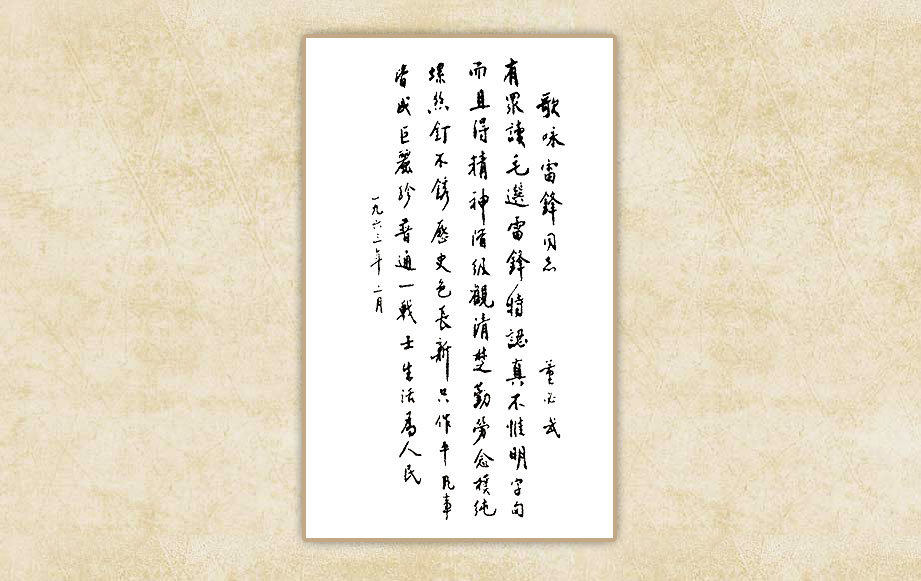 歌咏雷鋒同志
董必武
有眾讀毛選雷鋒特認真不惟明字句
而且得精神階級觀清楚勤勞念樸純
螺絲釘不銹歷史色長新只作平凡事
皆成巨麗珍普通一戰士生活為人民
一九六三年二月